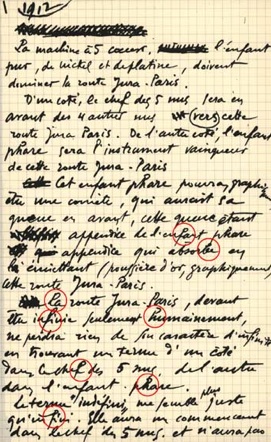 1912
La machine à 5 coeurs, l'enfant
pur, de nickel et de platine, doivent
dominer la route Jura-Paris.
D'un coté, le chef des 5 nus sera en
avant des 4 autres nus vers cette
route Jura Paris. De l'autre coté, l'enfant
phare sera l'instrument vainqueur
de cette route Jura-Paris
Cet enfant phare pourra, graphiq
être une comète, qui aurait sa
queue en avant, cette queue étant
appendice de l'enfant phare
appendice qui absorbe en
émiettant (poussière d'or, graphiquement
cette route Jura-Paris.
La route Jura-Paris, devant
être infinie seulement humainement,
ne perdra rien de son caractère d'infini
en trouvant un terme d'un coté
dans le chef des 5 nus de l'autre
dans l'enfant phare.
Le terme "indéfini" me semble plus juste
qu'infini. Elle aura un commencement
dans le chef des 5 nus, et n'aura pas